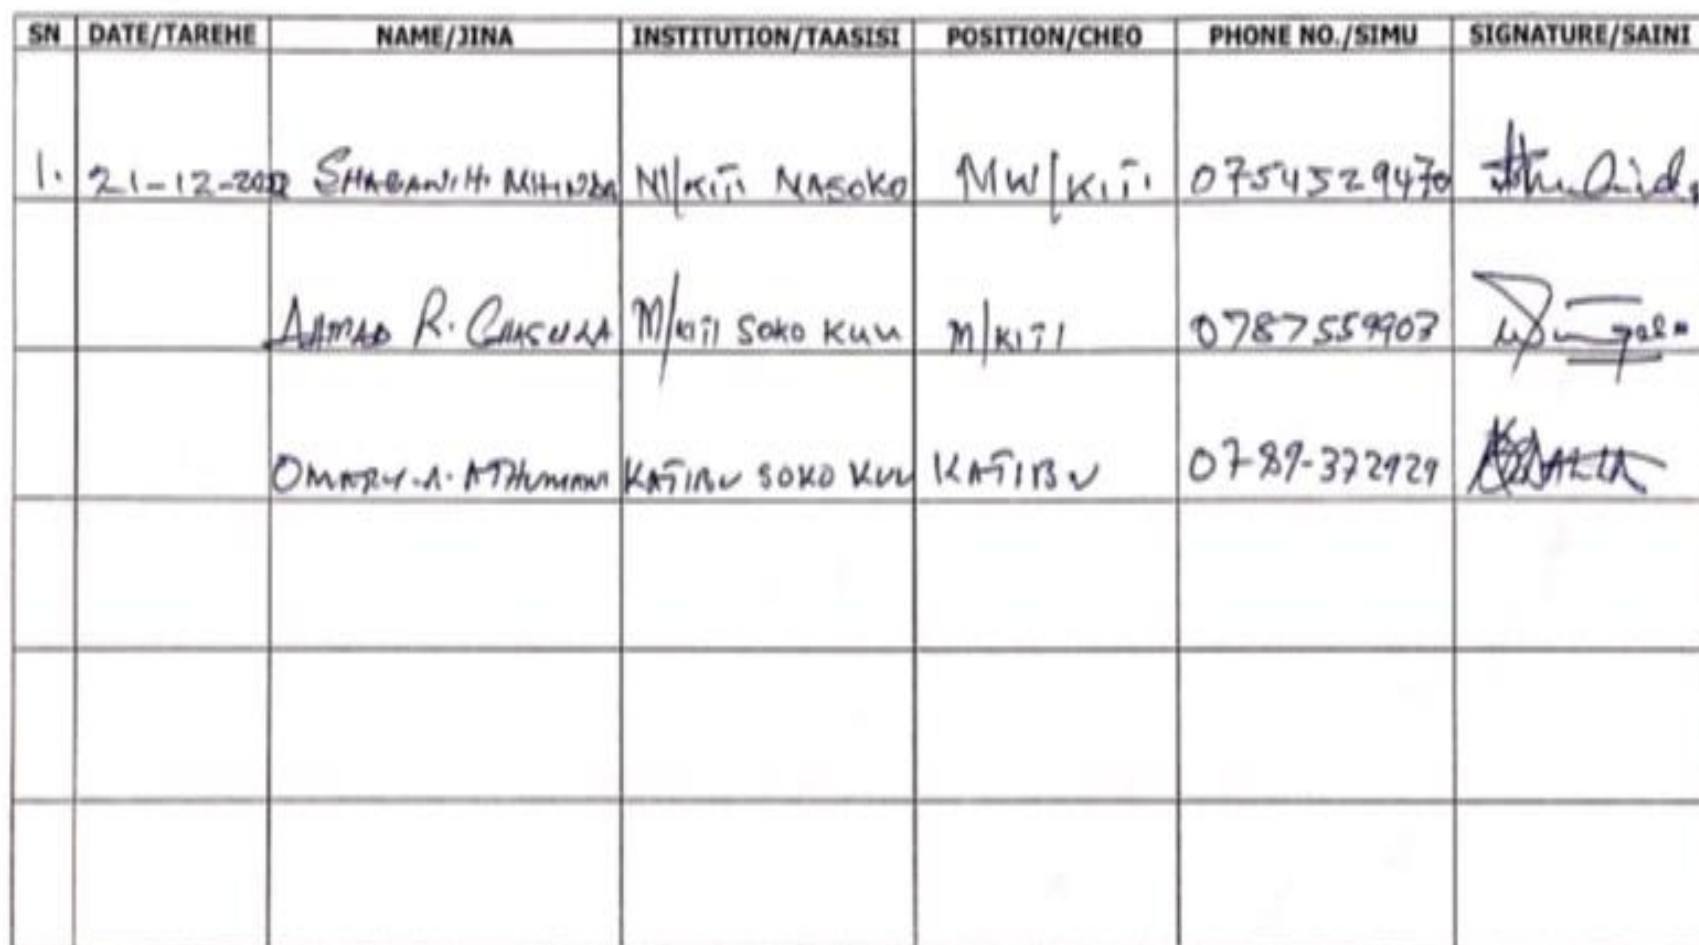 SN DATE/TAREHE NAME/JINA INSTITUTION/TAASISI POSITION/CHEO PHONE NO./SIMU SIGNATURE/SAINI
1. 21-12-2022 SHABANI.H. M/KITI MASOKO MW/KITI 0754529470
R. M/KITI SOKO KUU M/KITI 0787559903
OMARY.A.ATHUMANI KATIBU SOKO KUU KATIBU 0789-372929